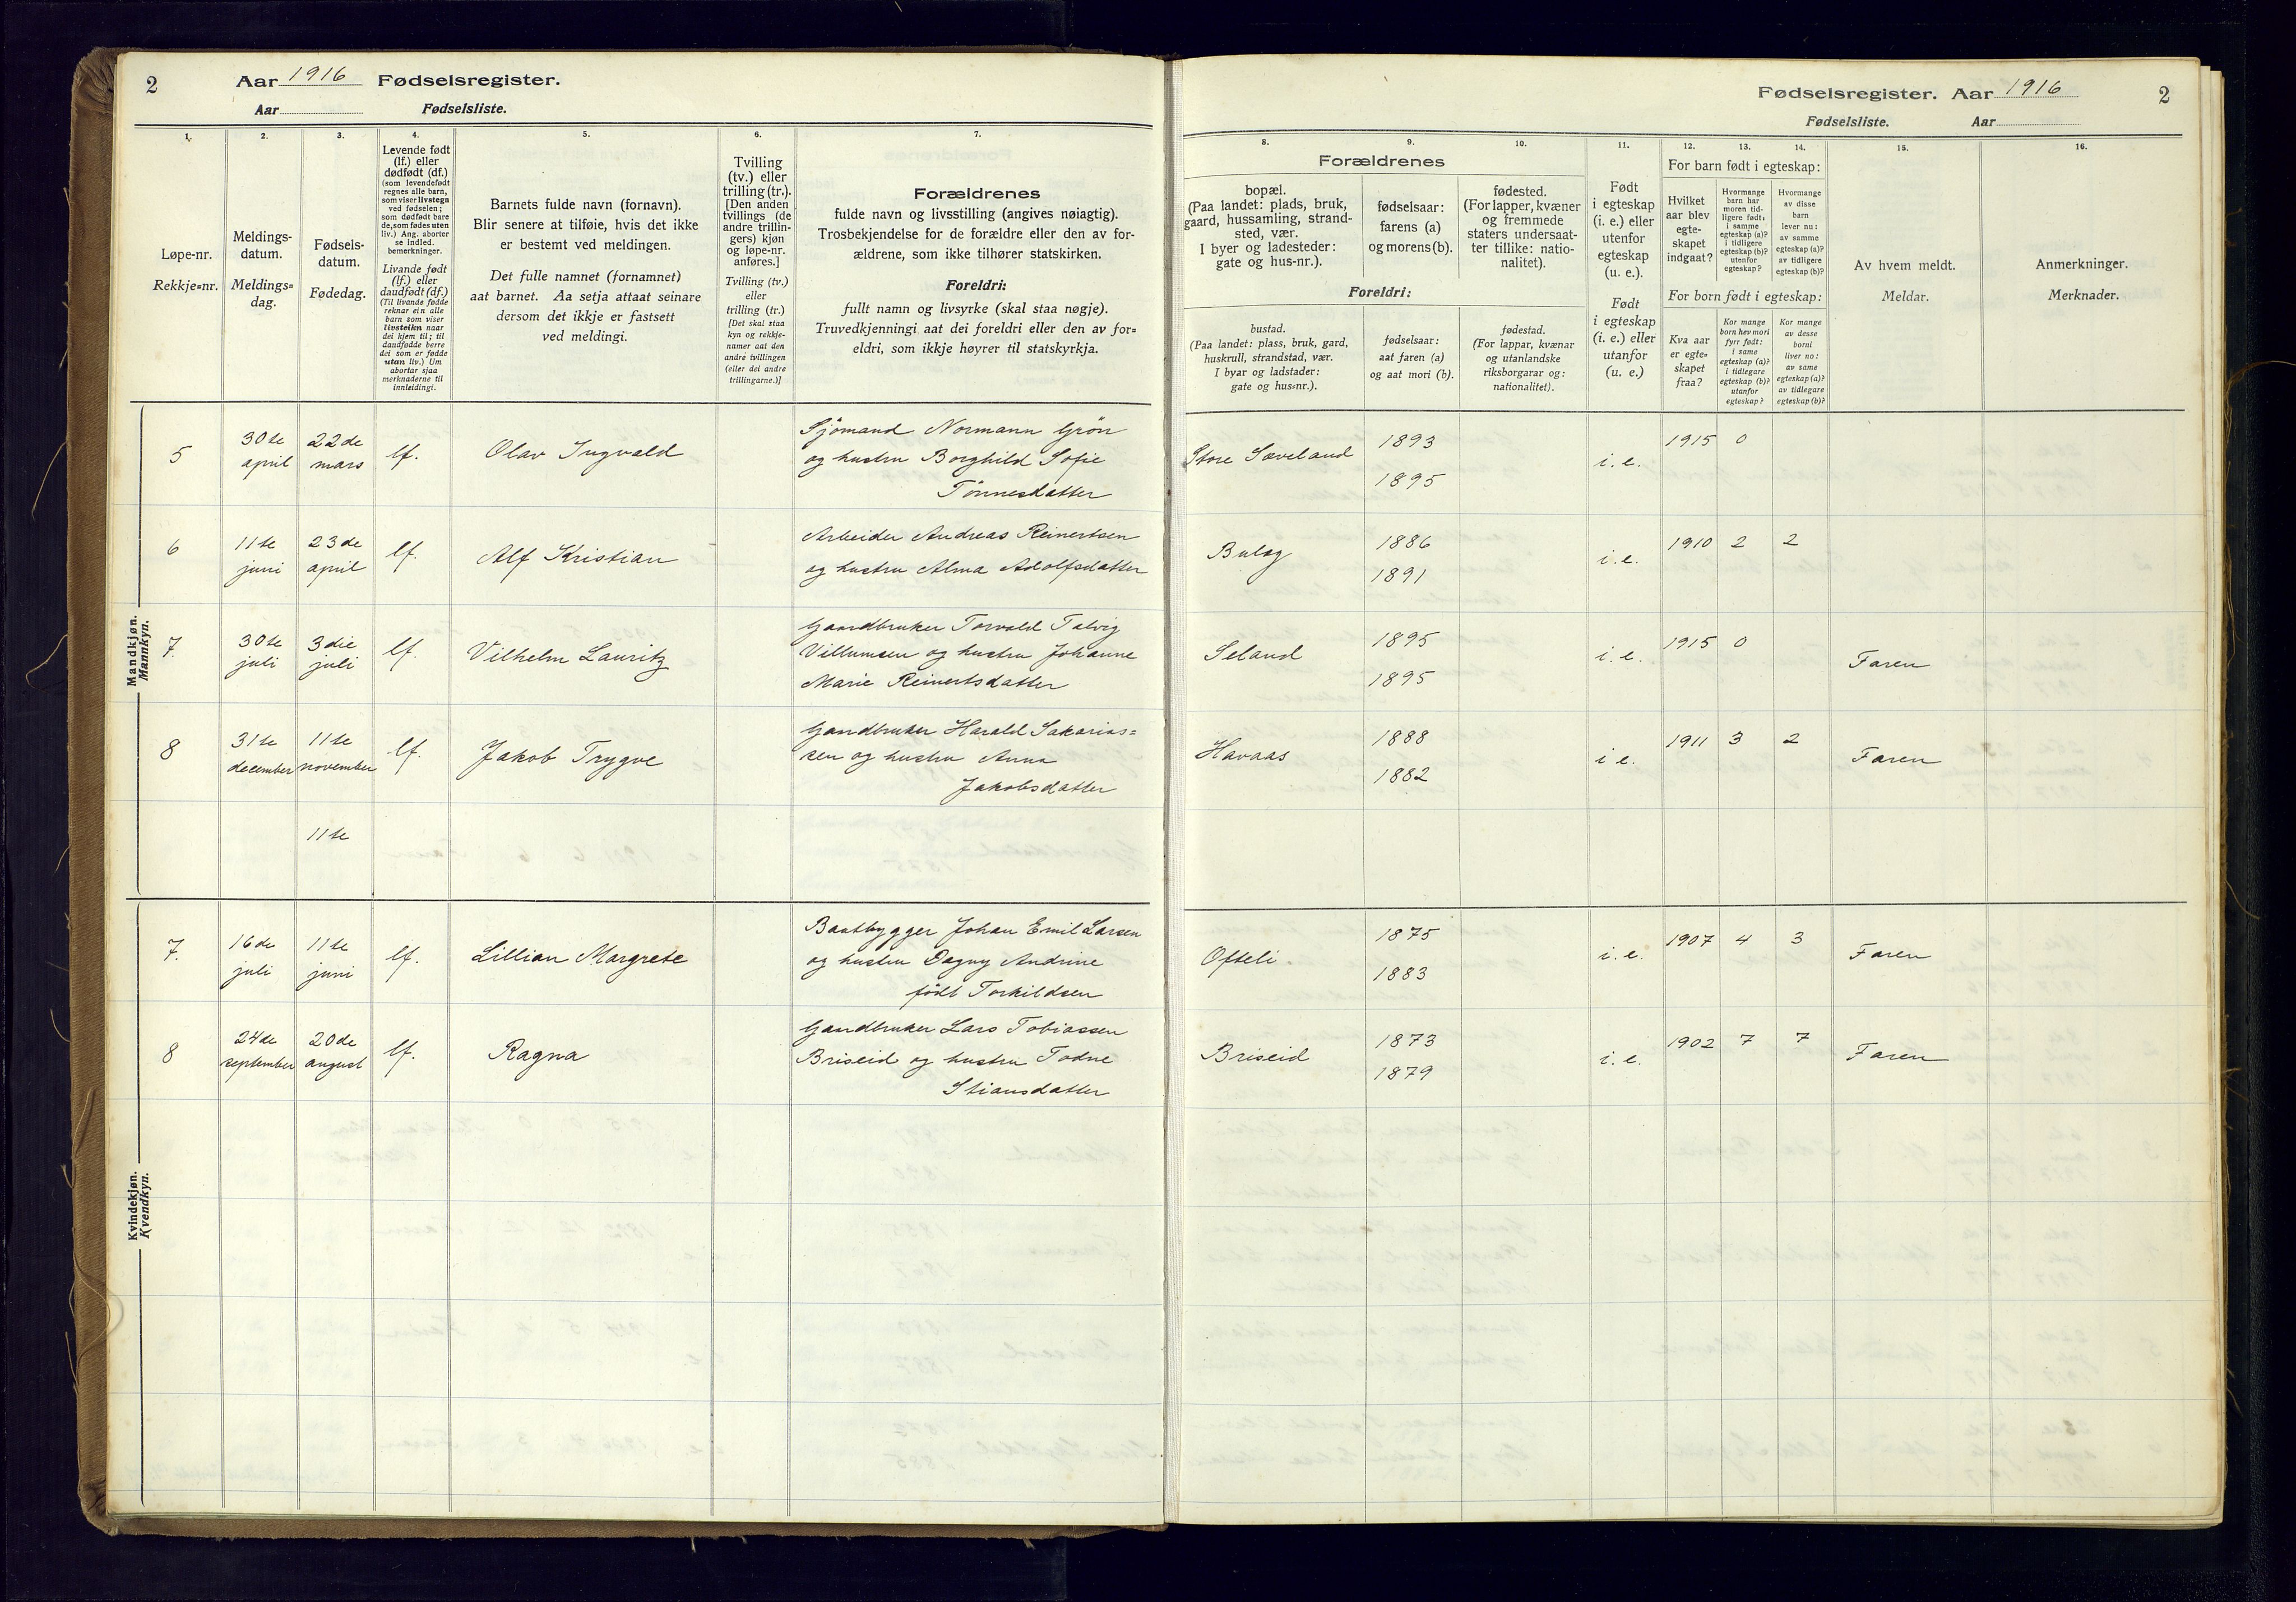 2
Aar 1916 Fødselsregister.
Aar Fødselsliste.
Fødselsregister. Aar 1916
2
Fødselsliste. Aar
1.
Løpe-nr.
Rekkje=nr.
2.
Meldings-
datum.
Meldings=
dag.
3.
Fødsels-
datum.
Fødedag.
4.
Levende født
(lf.) eller
dødfødt (df.)
(som levendefødt
regnes alle barn,
som viser livstegn
ved fødselen;
som dødfødt bare
de, som fødes uten
liv.) Ang. aborter
se indled.
bemerkninger.
Livande født
(lf.) eller
daudfødt (df.)
(Til livande fødde
reknar ein alle
barn som viser
livsteikn naar
dei kjem til; til
daudfødde berre
dei som er fødde
utan liv.) Um
abortar sjaa
merknaderne til
innleidingi.
5.
Barnets fulde navn (fornavn).
Blir senere at tilføie, hvis det ikke
er bestemt ved meldingen.
Det fulle namnet (fornamnet)
aat barnet. Aa setja attaat seinare
dersom det ikkje er fastsett
ved meldingi.
6.
Tvilling
(tv.) eller
trilling (tr.).
[Den anden
tvillings (de
andre trillin-
gers) kjøn
og løpe-nr.
anføres.]
Tvilling (tv.)
eller
trilling (tr.)
[Det skal staa
kyn og rekkje-
numer aat den
andre tvillingen
(eller dei andre
trillingarne.)]
7.
Forældrenes
fulde navn og livsstilling (angives nøiagtig).
Trosbekjendelse for de forældre eller den av for-
ældrene, som ikke tilhører statskirken.
Foreldri:
fullt namn og livsyrke (skal staa nøgje).
Truvedkjenningi aat dei foreldri eller den av for=
eldri, som ikkje høyrer til statskyrkja.
8.
9.
10.
Forældrenes
bopæl.
(Paa landet: plads, bruk,
gaard, hussamling, strand-
sted, vær.
I byer og ladesteder:
gate og hus-nr.).
fødselsaar:
farens (a)
og morens (b).
fødested.
(For lapper, kvæner
og fremmede
staters undersaat-
ter tillike: natio-
nalitet).
Foreldri:
bustad.
(Paa landet: plass, bruk, gard,
huskrull, strandstad, vær.
I byar og ladstader:
gate og hus=nr.).
fødselsaar:
aat faren (a)
og aat mori (b).
fødestad.
(For lappar, kvænar
og utanlandske
riksborgarar og:
nationalitet).
11.
Født
i egteskap
(i. e.) eller
utenfor
egteskap
(u. e.).
Født
i egteskap
(i. e.) eller
utanfor
(u. e.)
12.
13.
14.
For barn født i egteskap:
Hvilket
aar blev
egte-
skapet
indgaat?
Hvormange
barn har
moren tid-
ligere født:
i samme
egteskap (a)?
i tidligere
egteskap (b)?
utenfor
egteskap?
Hvormange
av disse
barn
lever nu:
av samme
egteskap (a)?
av tidligere
egteskap (b)?
For born født i egteskap:
Kva aar
er egte=
skapet
fraa?
Kor mange
born hev mori
fyrr født:
i same
egteskap (a)?
i tidlegare
egteskap (b)?
utanfor
egteskap?
Kor mange
av desse
borni
liver no:
av same
egteskap (a)?
av tidlegare
egteskap (b)?
15.
Av hvem meldt.
Meldar.
16.
Anmerkninger.
Merknader.
Mandkjøn.
Mannkyn.
5 30te april 22de mars lf. Olav Ingvald
Sjömand Normann Grön
og hustru Borghild Sofie
Tönnesdatter
Store Sæveland 1893 1895 i. e. 1915 0
6 11te juni 23de april lf. Alf Kristian
Arbeider Andreas Reinertsen
og hustru Alma Adolfsdatter
Bulæg 1886 1891 i. e. 1910 2 2
7. 30te juli 3die juli lf. Vilhelm Lauritz
Gaardbruker Torvald Talvig
Villumsen og hustru Johanne
Marie Reinertsdatter
Seland 1895 1895 i. e. 1915 0 Faren
8 31te december 11te november lf. Jakob Trygve
Gaardbruker Harald Sakarias=
sen og hustru Anna
Jakobsdatter
Havaas 1888 1882 i e. 1911 3 2 Faren
11te
Kvindekjøn.
Kvendkyn.
7. 16de juli 11te juni lf. Lillian Margrete
Baatbygger Johan Emil Larsen
og hustru Dagny Andrine
født Torkildsen
Ofteli 1875 1883 i. e. 1907 4 3 Faren
8 24de september 20de august lf. Ragna
Gaardbruker Lars Tobiassen
Briseid og hustru Todne
Stiansdatter
Briseid 1873 1879 i. e. 1902 7 7 Faren